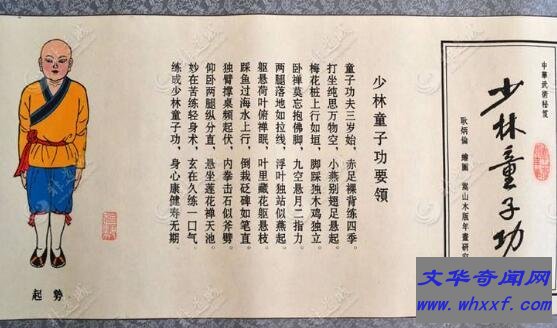 中華武術秘笈
少林童子功
耿炳倫 繪圖 嵩山木版年畫研究
少林童子功要領
童子功夫三岁始，赤足裸背练四季。
打坐纯思万物空，小燕别翅足悬起。
梅花桩上行如垣，脚踩独木鸡独立。
卧禅莫忘抱佛脚，九空悬月二指力。
两腿落地如拉线，浮叶独站似燕起。
躯悬荷叶俯禅眠，叶里藏花躯悬枝。
踩鱼过海水上行，倒栽砭碑如笔直。
独臂撑桌频起伏，内拳击石似斧劈。
仰卧两腿纵分直，悬坐莲花禅天池。
妙在苦练轻身术，玄在久练一口气。
练成少林童子功，身心康健寿无期。
起勢
文华奇闻网
www.whxxf.com